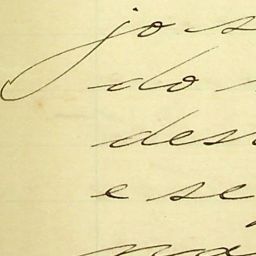 jo s
do
des
e se